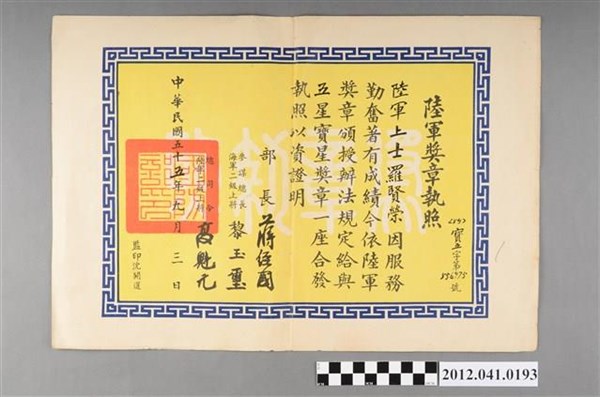 陸軍獎章執照
(59)寶五字第556475號
陸軍上士羅賢榮因服務
勤奮著有成績今依陸軍
獎章頒授辦法規定給與
五星寶星獎章一座合發
執照以資證明
部長 蔣經國
參謀總長
海軍二級上將 黎玉璽
總司令
陸軍二級上將 高魁元
中華民國五十五年九月三日
監印沈開運
2012.041.0193